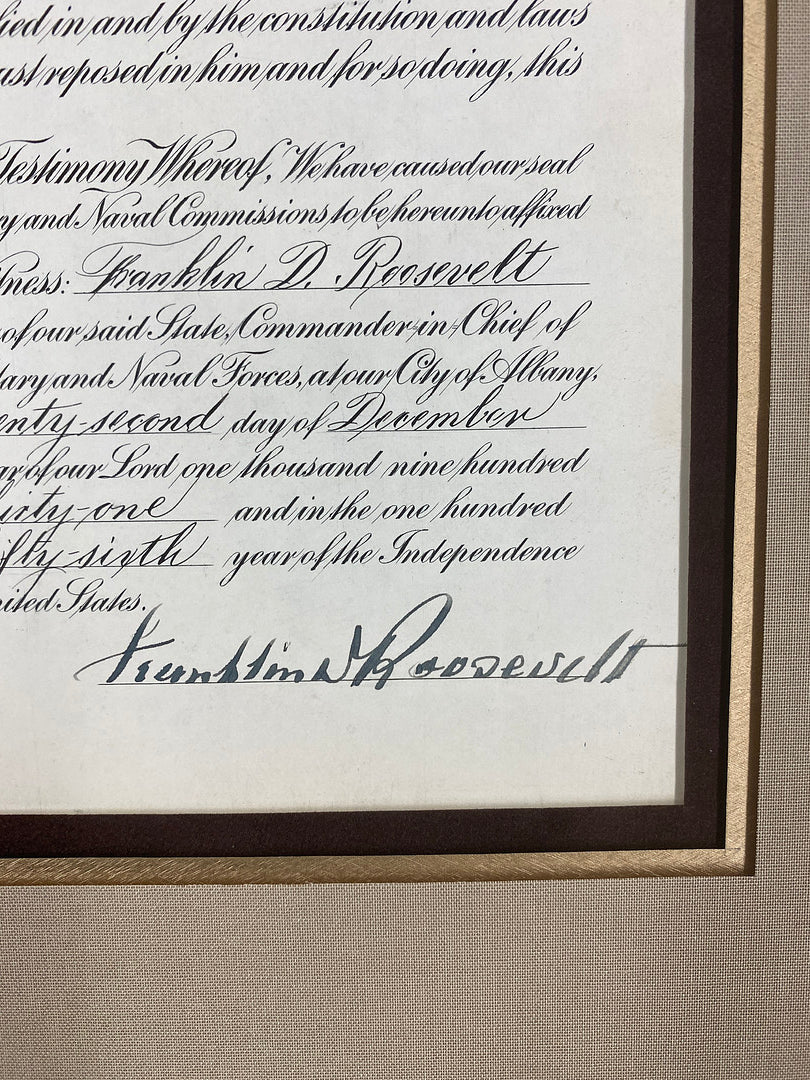 lied in and by the constitution and laws
ust reposed in him and for so doing, this
Testimony Whereof, We have caused our seal
ry and Naval Commissions to be hereunto affixed
tness: Franklin D. Roosevelt
of our said State, Commander-in-Chief of
tary and Naval Forces, at our City of Albany,
enty-second day of December
ar of our Lord one thousand nine hundred
irty-one and in the one hundred
ifty-sixth year of the Independence
nited States.
Franklin D Roosevelt